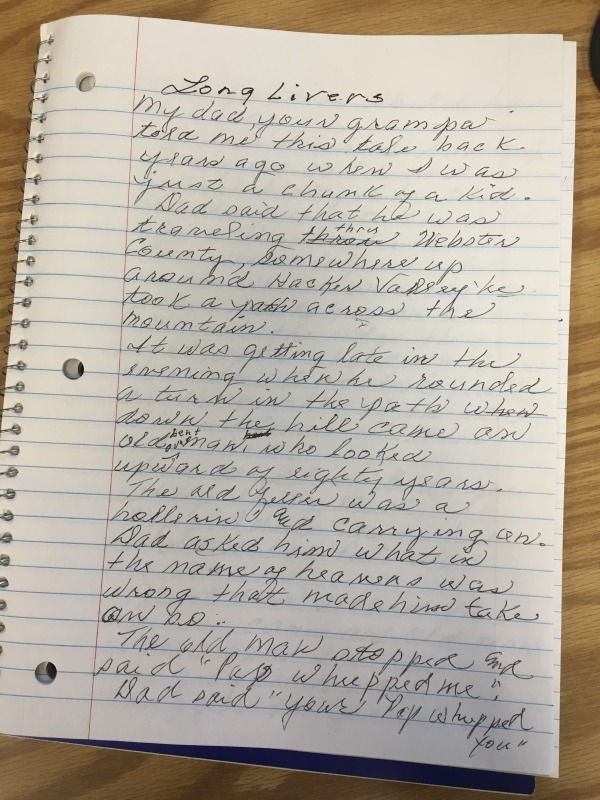 Long Livers
My dad your grampa
told me this tale back
years ago when I was
just a chunk of a kid.
Dad said that he was
thru
traveling throu Webster
County, somewhere up
around Hacker Valley he
took a path across the
mountain.
It was getting late in the
evening when he rounded
a turn in the path when
down the hill came an
old bent over man, who looked
upward of eighty years.
The old feller was a
hollerin' and carrying on.
Dad asked him what in
the name of heavens was
wrong that made him take
on so.
The old man stopped and
said "Pap whupped me".
Dad said "your Pap whupped
you"